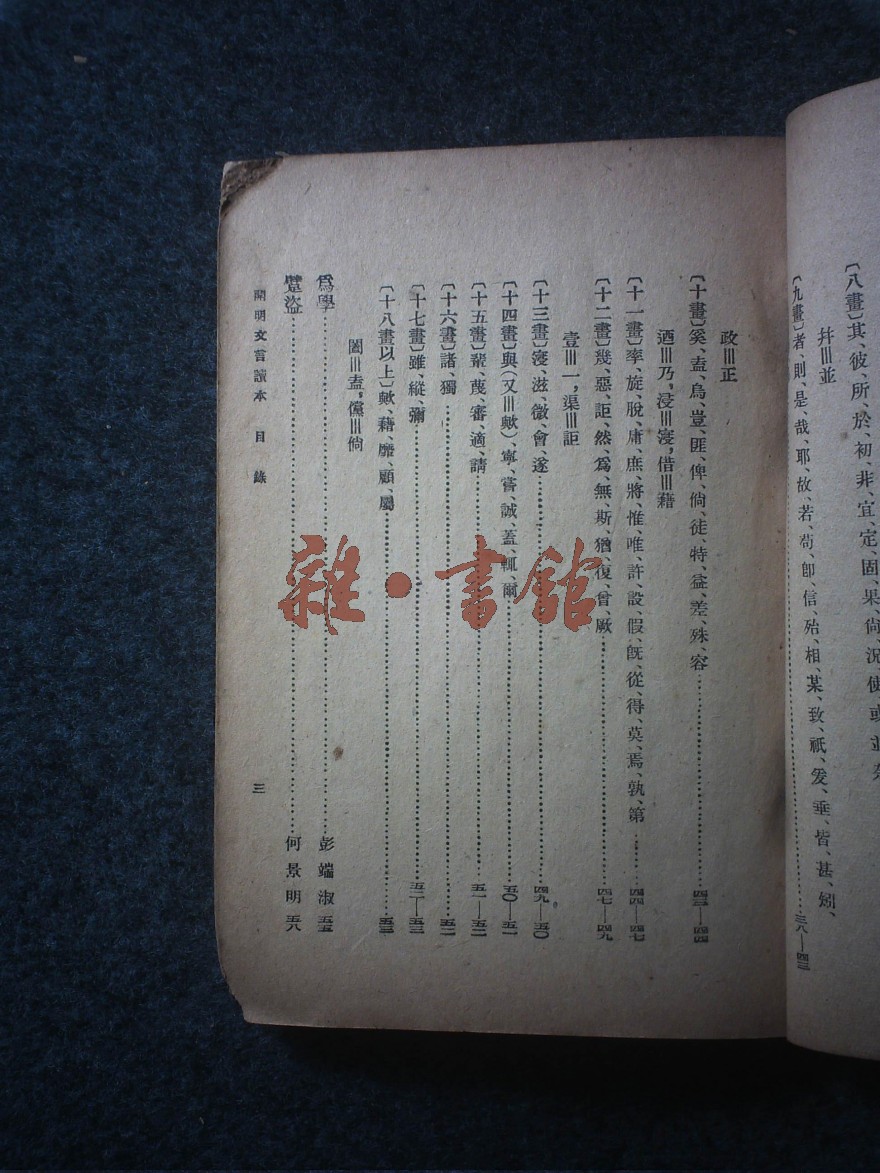 〔八畫〕其、彼、所、於、初、非、宜、定、固、果、尙、況、使、或、並、
幷‖|並
〔九畫〕者、則、是、哉、耶、故、若、苟、卽、信、殆、相、某、致、祇、爰、垂、皆、甚、矧、……三八—四三
政≡正
〔十畫〕奚、盍、烏、豈、匪、俾、倘、徒、特、益、差、殊、容……四三—四四
迺≡乃，浸≡寖，借≡藉
〔十一畫〕率、旋、脫、庸、庶、將、惟、唯、許、設、假、旣、從、得、莫、焉、孰、第……四四—四七
〔十二畫〕幾、惡、詎、然、爲、無、斯、猶、復、曾、厥……四七—四九
壹≡一，渠≡詎
〔十三畫〕寖、滋、微、會、遂……四九—五〇
〔十四畫〕與（又≡歟）、寧、嘗、誠、蓋、輒、爾……五〇—五一
〔十五畫〕輩、蔑、審、適、請……五一—五二
〔十六畫〕諸、獨……五二
〔十七畫〕雖、縱、彌……五二—五三
〔十八畫以上〕歟、藉、靡、顧、屬……五三
闔≡盍，儻≡倘
爲學……彭端淑 五五
躄盜……何景明 五八
開明文言讀本 目錄
三
雜·書館